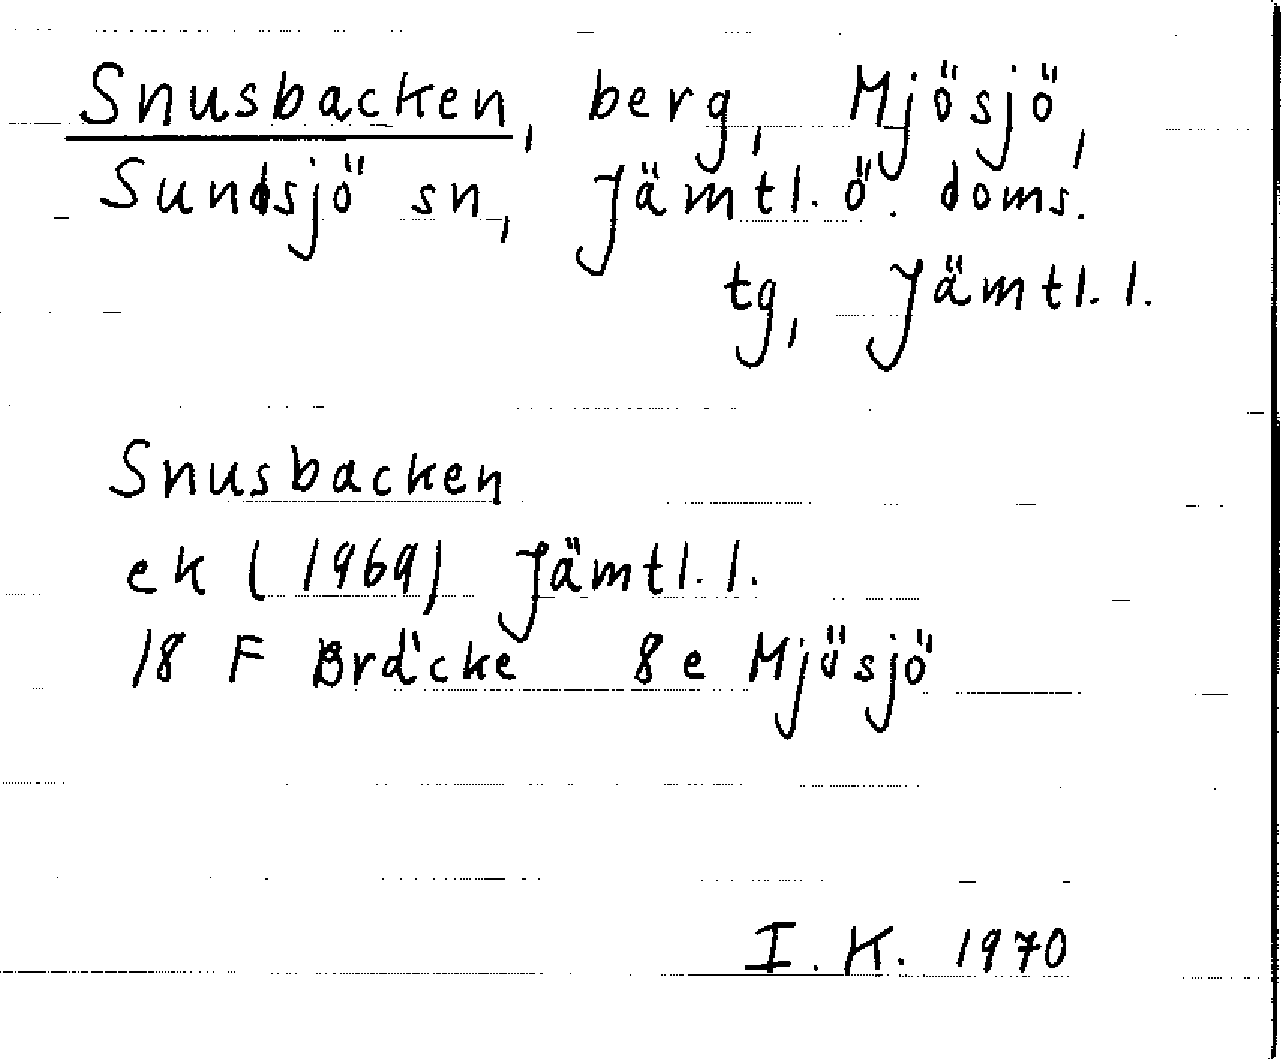 Snusbacken, berg, Mjösjö,
Sundsjö sn, Jämtl. ö. doms.
tg, Jämtl. l.
Snusbacken
ek (1969) Jämtl. l.
18 F Bräcke 8e Mjösjö
I. K. 1970